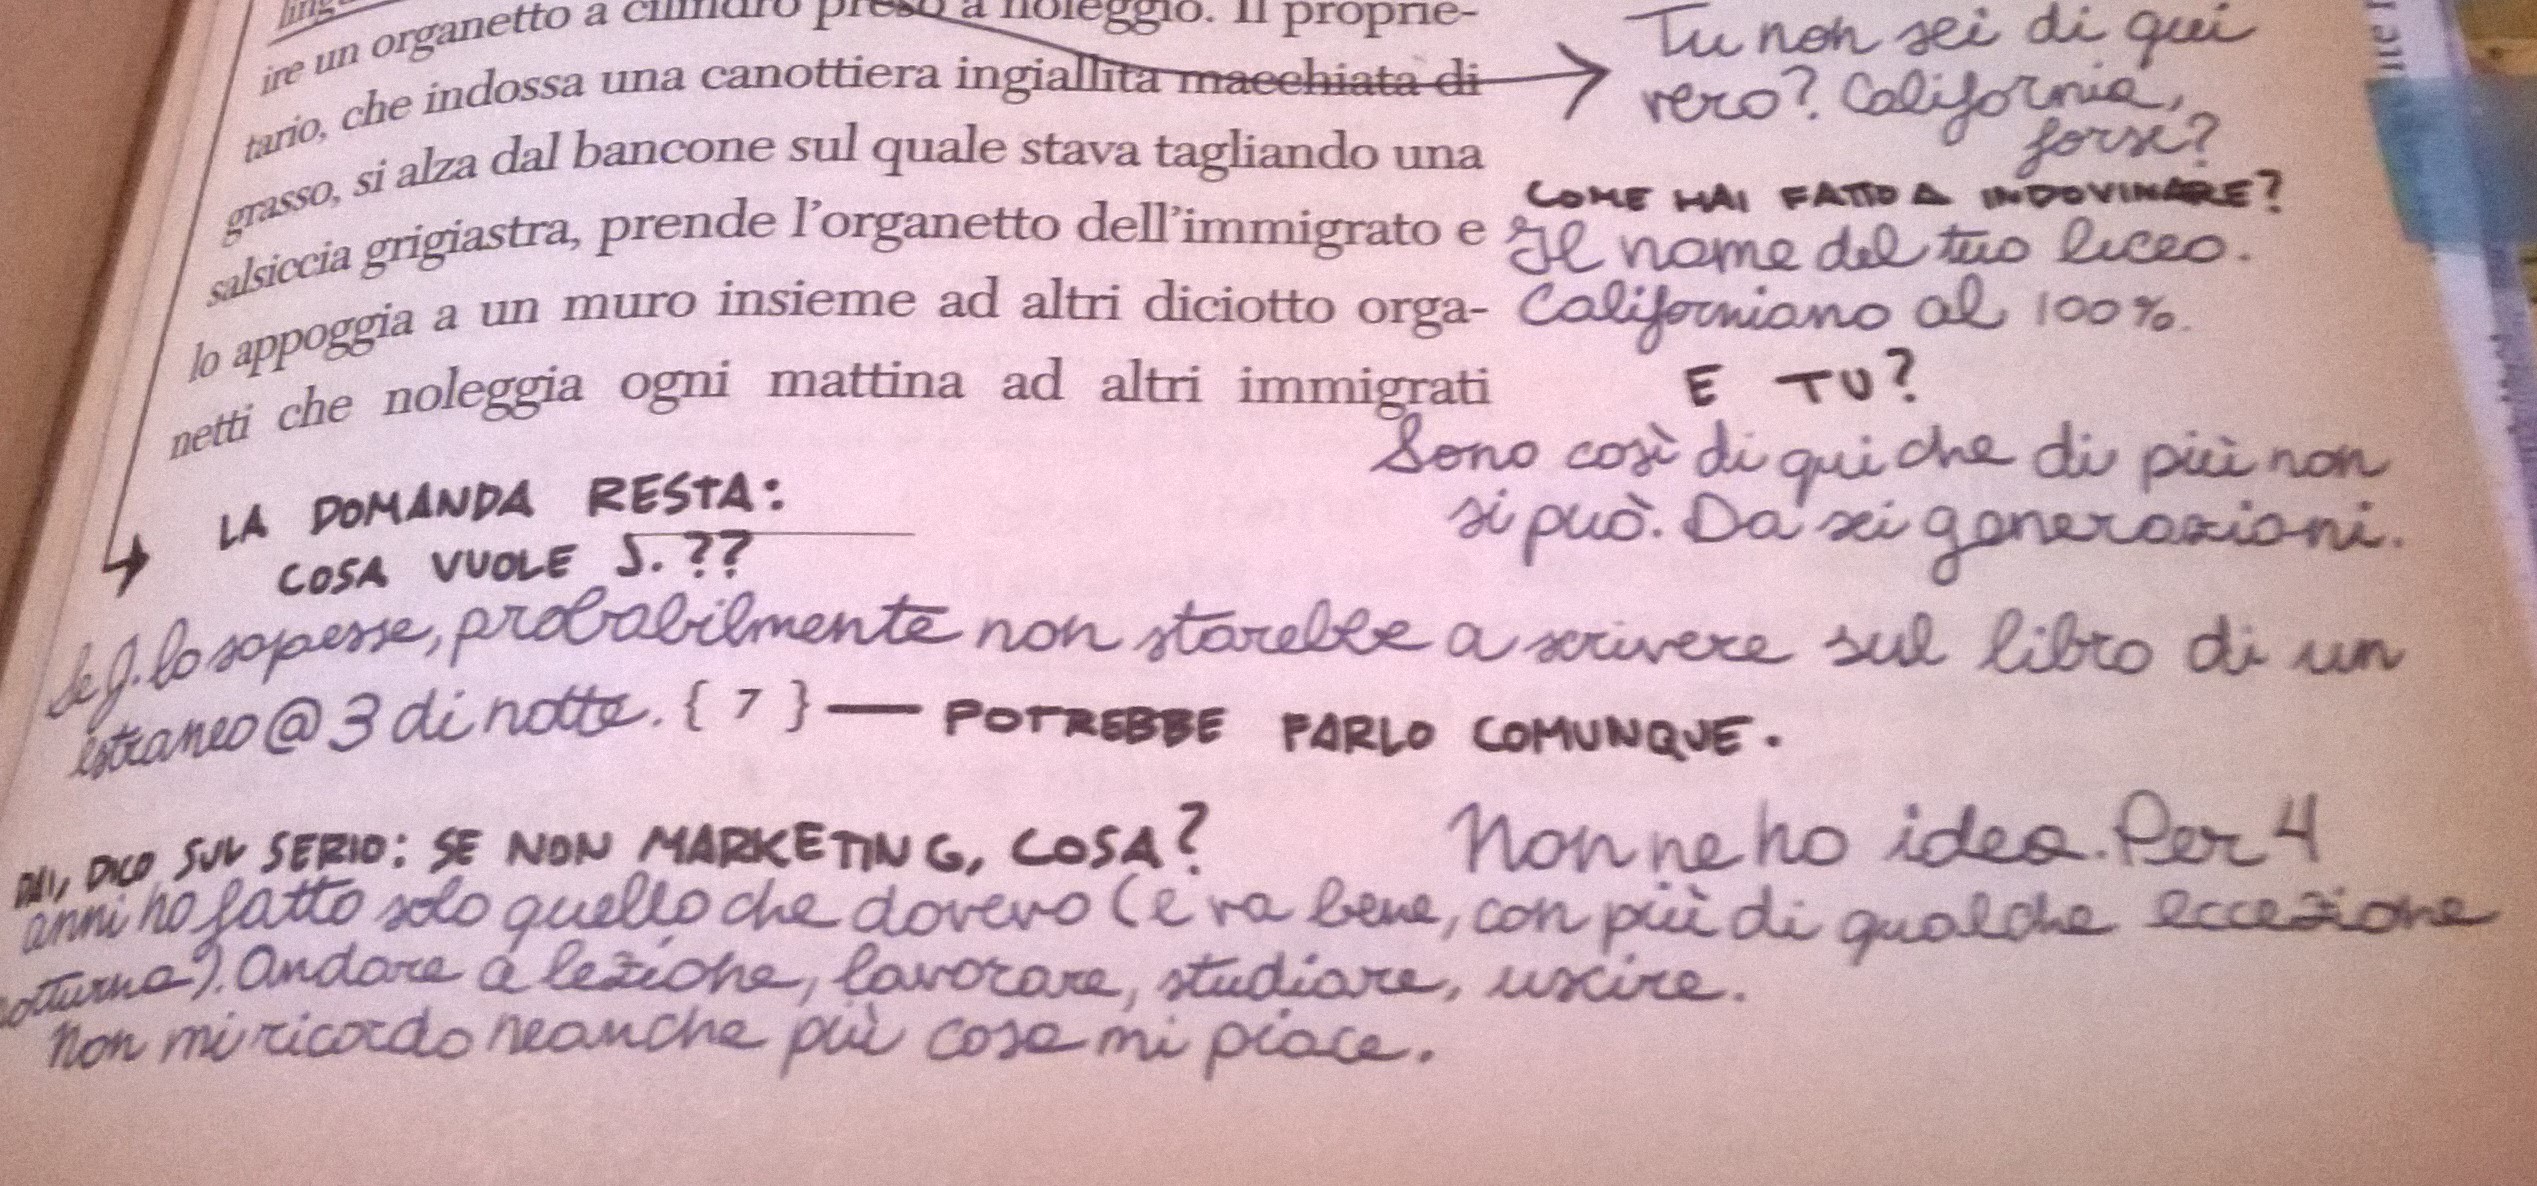 ire un organetto a cilindro preso a noleggio. Il proprie-
tario, che indossa una canottiera ingiallita macchiata di
grasso, si alza dal bancone sul quale stava tagliando una
salsiccia grigiastra, prende l'organetto dell'immigrato e
lo appoggia a un muro insieme ad altri diciotto orga-
netti che noleggia ogni mattina ad altri immigrati
Tu non sei di qui
vero? California,
forse?
COME HAI FATTO A INDOVINARE?
Il nome del tuo liceo.
Californiano al 100%.
E TU?
Sono così di qui che di più non
si può. Da sei generazioni.
LA DOMANDA RESTA:
COSA VUOLE J. ??
Se J. lo sapesse, probabilmente non starebbe a scrivere sul libro di un
estraneo @ 3 di notte. { 7 } — POTREBBE FARLO COMUNQUE.
DAI, DICO SUL SERIO: SE NON MARKETING, COSA?
Non ne ho idea. Per 4
anni ho fatto solo quello che dovevo (e va bene, con più di qualche eccezione
notturna). Andare a lezione, lavorare, studiare, uscire.
Non mi ricordo neanche più cosa mi piace.